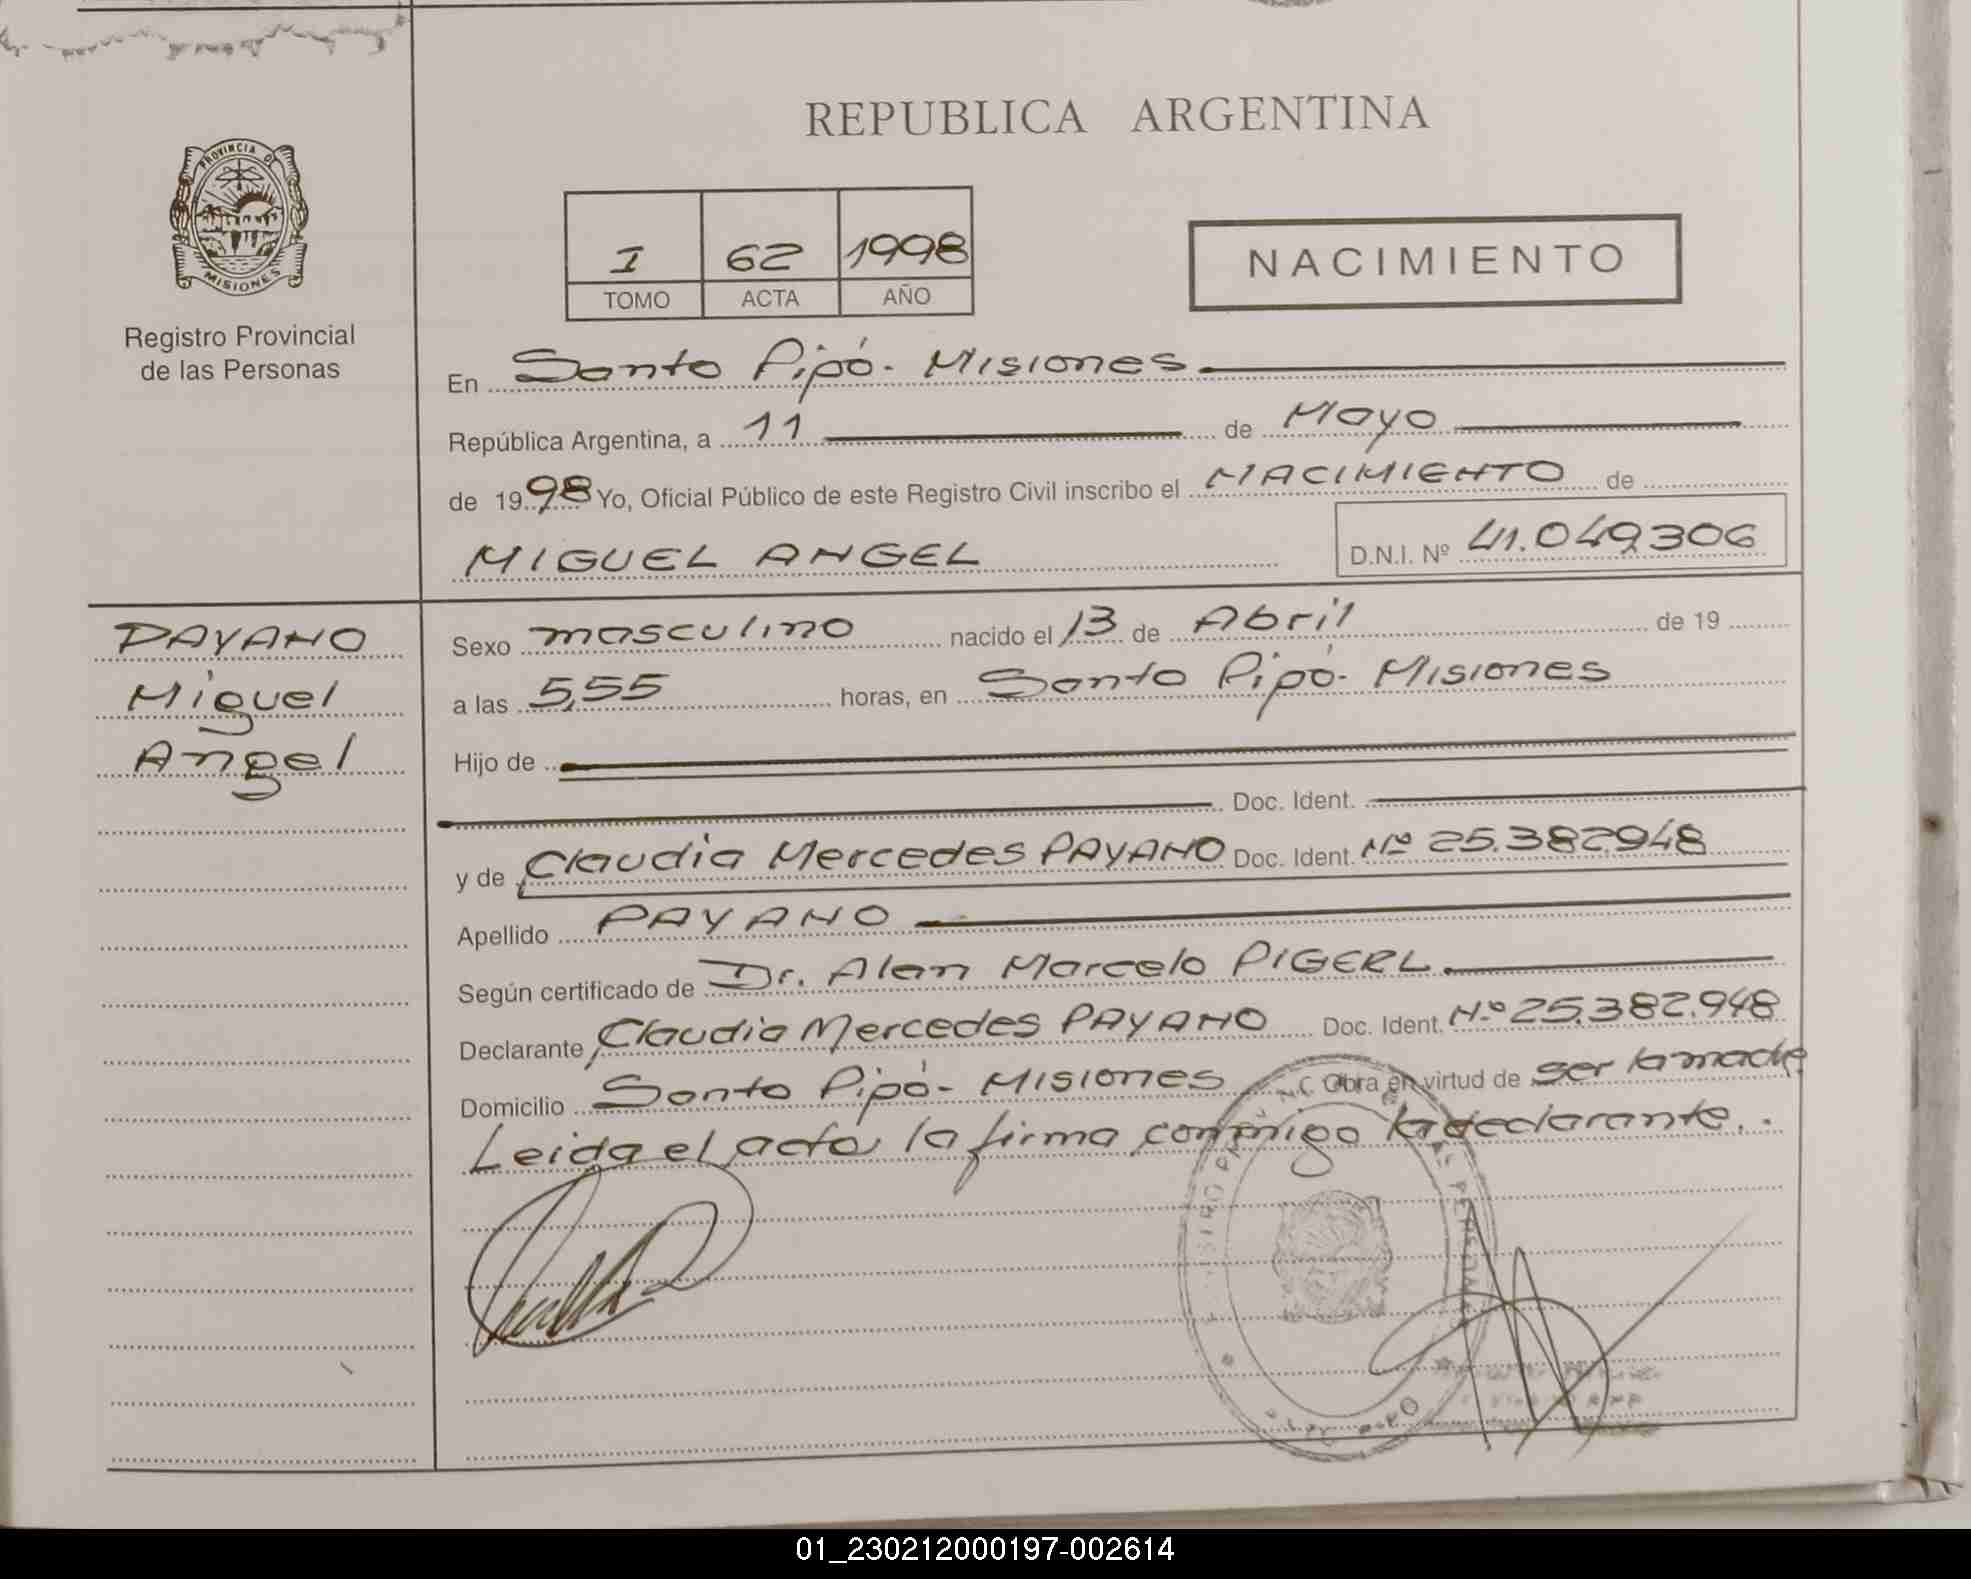 REPUBLICA ARGENTINA
PROVINCIA DE
MISIONES
Registro Provincial
de las Personas
I 62 1998
TOMO ACTA AÑO
NACIMIENTO
En Santo Pipó - Misiones
República Argentina, a 11 de Mayo
de 1998 Yo, Oficial Público de este Registro Civil inscribo el NACIMIENTO de
MIGUEL ANGEL D.N.I. Nº 41.049.306
PAYANO
Miguel
Angel
Sexo masculino nacido el 13 de Abril de 19
a las 5,55 horas, en Santo Pipó - Misiones
Hijo de
Doc. Ident.
y de Claudia Mercedes PAYANO Doc. Ident. Nº 25.382.948
Apellido PAYANO
Según certificado de Dr. Alan Marcelo PIGERL
Declarante Claudia Mercedes PAYANO Doc. Ident. Nº 25.382.948
Domicilio Santo Pipó - Misiones Obra en virtud de ser la madre
Leida el acta, la firma conmigo la declarante.
01_230212000197-002614